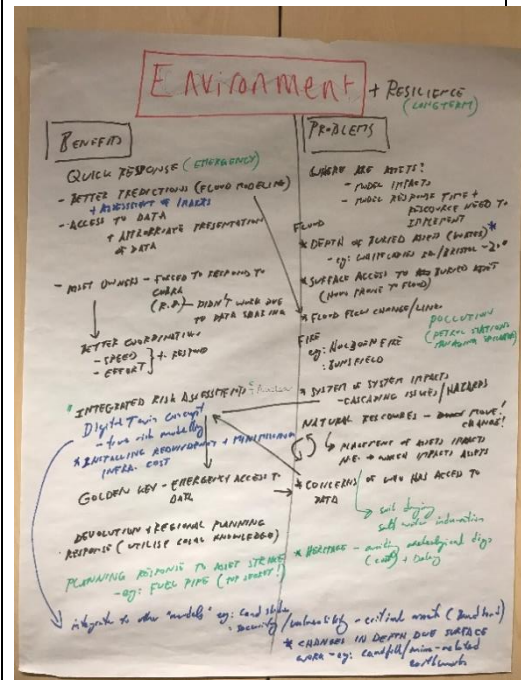 Environment + RESILIENCE
(LONGTERM)
BENEFITS
QUICK RESPONSE (EMERGENCY)
- BETTER PREDICTIONS (FLOOD MODELING)
+ ASSESSMENT OF
- ACCESS TO DATA
+ APPROPRIATE PRESENTATION
OF DATA
- ASSET OWNERS - FORCED TO RESPOND TO
COBRA
DIDN'T WORK DUE
TO DATA SHARING
BETTER COORDINATION
- SPEED
- EFFORT } to RESPOND
INTEGRATED RISK ASSESSMENTS
Digital Twin concept
- risk modelling
* INSTALLING REDUNDANCY + MINIMISING
INFRA. COST
GOLDEN KEY - EMERGENCY ACCESS TO
DATA
DEVOLUTION + REGIONAL PLANNING
RESPONSE (UTILISE LOCAL KNOWLEDGE)
PLANNING RESPONSE TO ASSET STRIKE
- eg: FUEL PIPE
integrate to other "models" eg:
PROBLEMS
WHERE ARE ASSETS?
- MODEL IMPACTS
- MODEL RESPONSE TIME +
RESOURCE NEED TO
IMPLEMENT
FLOOD
* DEPTH OF BURIED ASSETS (WATER) *
- eg: BRISTOL
* SURFACE ACCESS TO BURIED ASSET
PRONE TO FLOOD)
* FLOOD FLOW CHANGE/
POLLUTION
(PETROL STATIONS
FIRE
eg: HOLBORN FIRE
: BUNSFIELD
* SYSTEM OF SYSTEM IMPACTS
- CASCADING ISSUES/HAZARDS
NATURAL RESOURCES - MOVE!
CHANGE!
PLACEMENT OF ASSETS IMPACTS
N.E. → WHICH IMPACTS ASSETS
* CONCERNS OF WHO HAS ACCESS TO
DATA
soil
information
* HERITAGE - archeological digs
(cost) + Delay
security/vulnerability - critical assets
* CHANGES IN DEPTH DUE SURFACE
WORK - eg: landfill/mine-related
earthworks